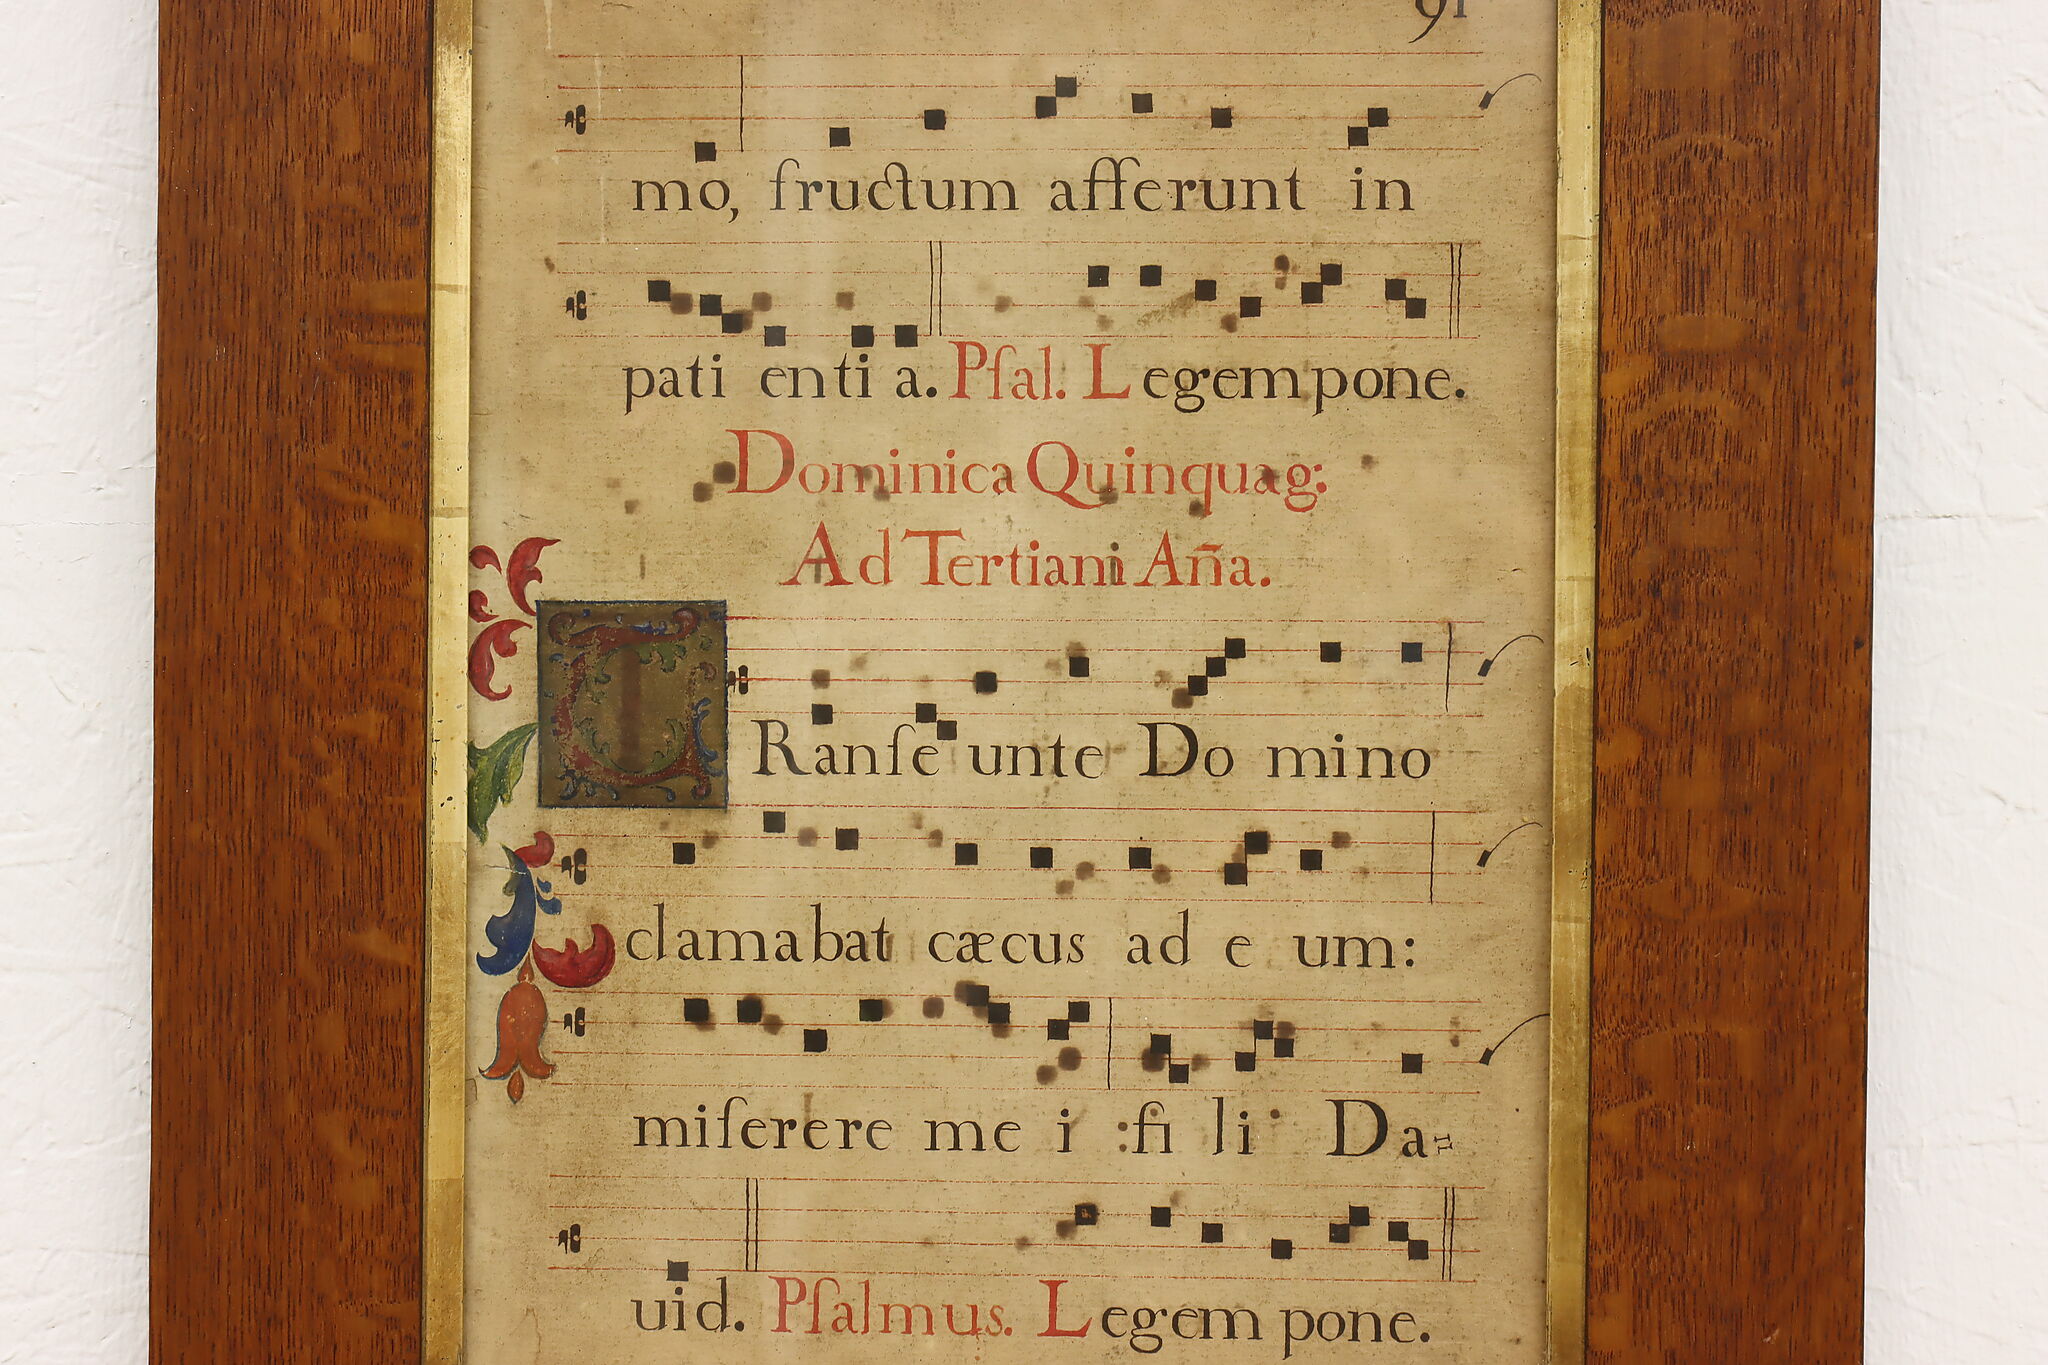 91
mo, fructum afferunt in
pati enti a. Pſal. Legem pone.
Dominica Quinquag:
Ad Tertiam Aña.
TRanſe unte Do mino
clamabat cæcus ad e um:
miſerere me i :fi li Da-
uid. Pſalmus. Legem pone.